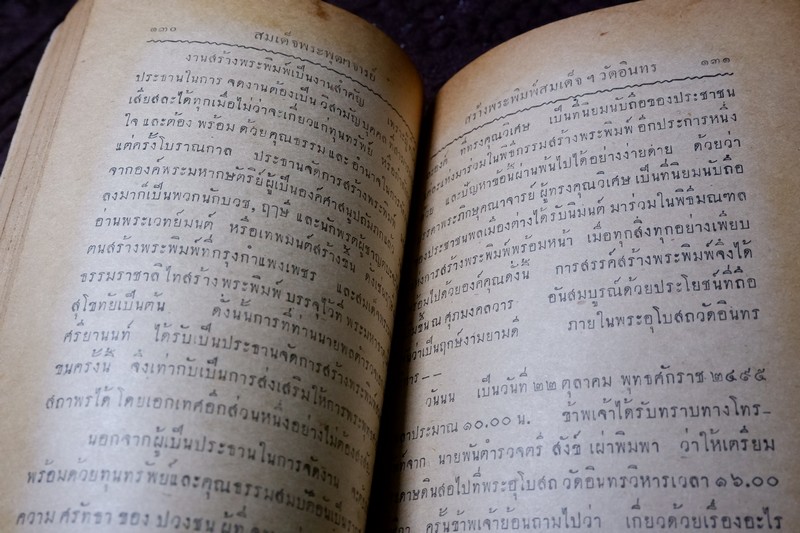 ๑๓๐ สมเด็จพระพุฒาจารย์
งานสร้างพระพิมพ์เป็นงานสำคัญ เพราะ
ประธานในการ จัดงานต้องเป็น วิสามัญบุคคล ที่
เสียสละได้ทุกเมื่อไม่ว่าจะเกี่ยวแก่ทุนทรัพย์ หรือ
ใจ และต้อง พร้อม ด้วยคุณธรรม และ อำนาจในการ
แต่ครั้งโบราณกาล ประธานจัดการสร้างพระพิมพ์
จากองค์พระมหากษัตริย์ผู้เป็นองค์ศาสนูปถัมภกแล้ว
ลงมาก็เป็นพวกนักบวช, ฤาษี และนักพรตผู้ชาญ
อ่านพระเวทย์มนต์ หรือเทพมนต์สร้างขึ้น
ตนสร้างพระพิมพ์ที่กรุงกำแพงเพชร และสมเด็จพระ
ธรรมราชาลิไทสร้างพระพิมพ์ บรรจุไว้ที่ พระมหา
สุโขทัยเป็นต้น ดังนั้นการที่ท่านนายพลตำรวจ
ศรียานนท์ ได้รับเป็นประธานจัดการสร้างพระพิมพ์
ขนครั้งนี้ จึงเท่ากับเป็นการส่งเสริมให้การพระพุทธ
สถาพรได้ โดยเอกเทศอีกส่วนหนึ่งอย่างไม่ต้องสงสัย
นอกจากผู้เป็นประธานในการจัดงาน
พร้อมด้วยทุนทรัพย์และคุณธรรมสมบัติอันเป็น
ความ ศรัทธา ของ ปวงชน ผู้ที่
สร้างพระพิมพ์สมเด็จ ฯ วัดอินทร ๑๓๑
องค์ ที่ทรงคุณวิเศษ เป็นที่นิยมนับถือของประชาชน
มาร่วมในพิธีกรรมสร้างพระพิมพ์ อีกประการหนึ่ง
และปัญหาข้อนี้ผ่านพ้นไปได้อย่างง่ายดาย ด้วยว่า
พระภิกษุคณาจารย์ ผู้ทรงคุณวิเศษ เป็นที่นิยมนับถือ
ของประชาชนพลเมืองต่างได้รับนิมนต์ มาร่วมในพิธีมณฑล
การสร้างพระพิมพ์พร้อมหน้า เมื่อทุกสิ่งทุกอย่างเพียบ
ไปด้วยองค์คุณดังนี้ การสรรค์สร้างพระพิมพ์จึงได้
ขึ้น ณ ศุภมงคลวาร อันสมบูรณ์ด้วยประโยชน์ที่ถือ
ว่าเป็นฤกษ์งามยามดี ภายในพระอุโบสถวัดอินทร
วิหาร – –
วันนน เป็นวันที่ ๒๒ ตุลาคม พุทธศักราช ๒๔๙๕
ประมาณ ๑๐.๐๐ น. ข้าพเจ้าได้รับทราบทางโทร–
จาก นายพันตำรวจตรี สังข์ เผ่าพิมพา ว่าให้เตรียม
ดินสอไปที่พระอุโบสถ วัดอินทรวิหารเวลา ๑๖.๐๐
ครั้นข้าพเจ้าย้อนถามไปว่า เกี่ยวด้วยเรื่องอะไร